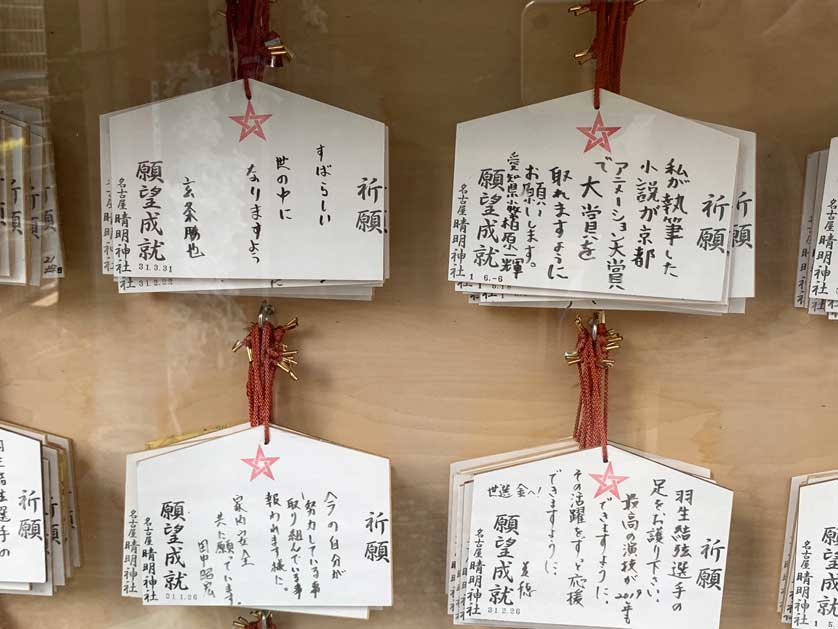 祈願
すばらしい
世の中に
なりますよう
願望成就
31.3.31
名古屋晴明神社
31.2.23
祈願
私が執筆した
小説が京都
アニメーション大賞
で大賞を
取れますように
お願いします。
愛知県 柏原一輝
願望成就
1 6.-6
名古屋晴明神社
祈願
祈願
今の自分が
努力している事
取り組んでいる事
報われます様に。
家内安全
共に願っています。
願望成就
31.1.26
名古屋晴明神社
祈願
羽生結弦選手の
足をお護り下さい。
最高の演技が2019年も
できますように、
その活躍をずっと応援
できますように、
世選 金へ!
願望成就
31.2.26
名古屋晴明神社
祈願
羽生結弦選手の
願望成就
名古屋晴明神社